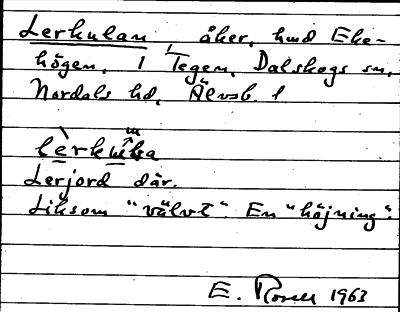 Lerkulan, åker, hmd Eke-
högen, 1 Tegen, Dalskogs sn,
Nordals hd, Älvsb. l
Lerjord där.
Liksom "välvt". En "höjning".
E. Rosell 1963